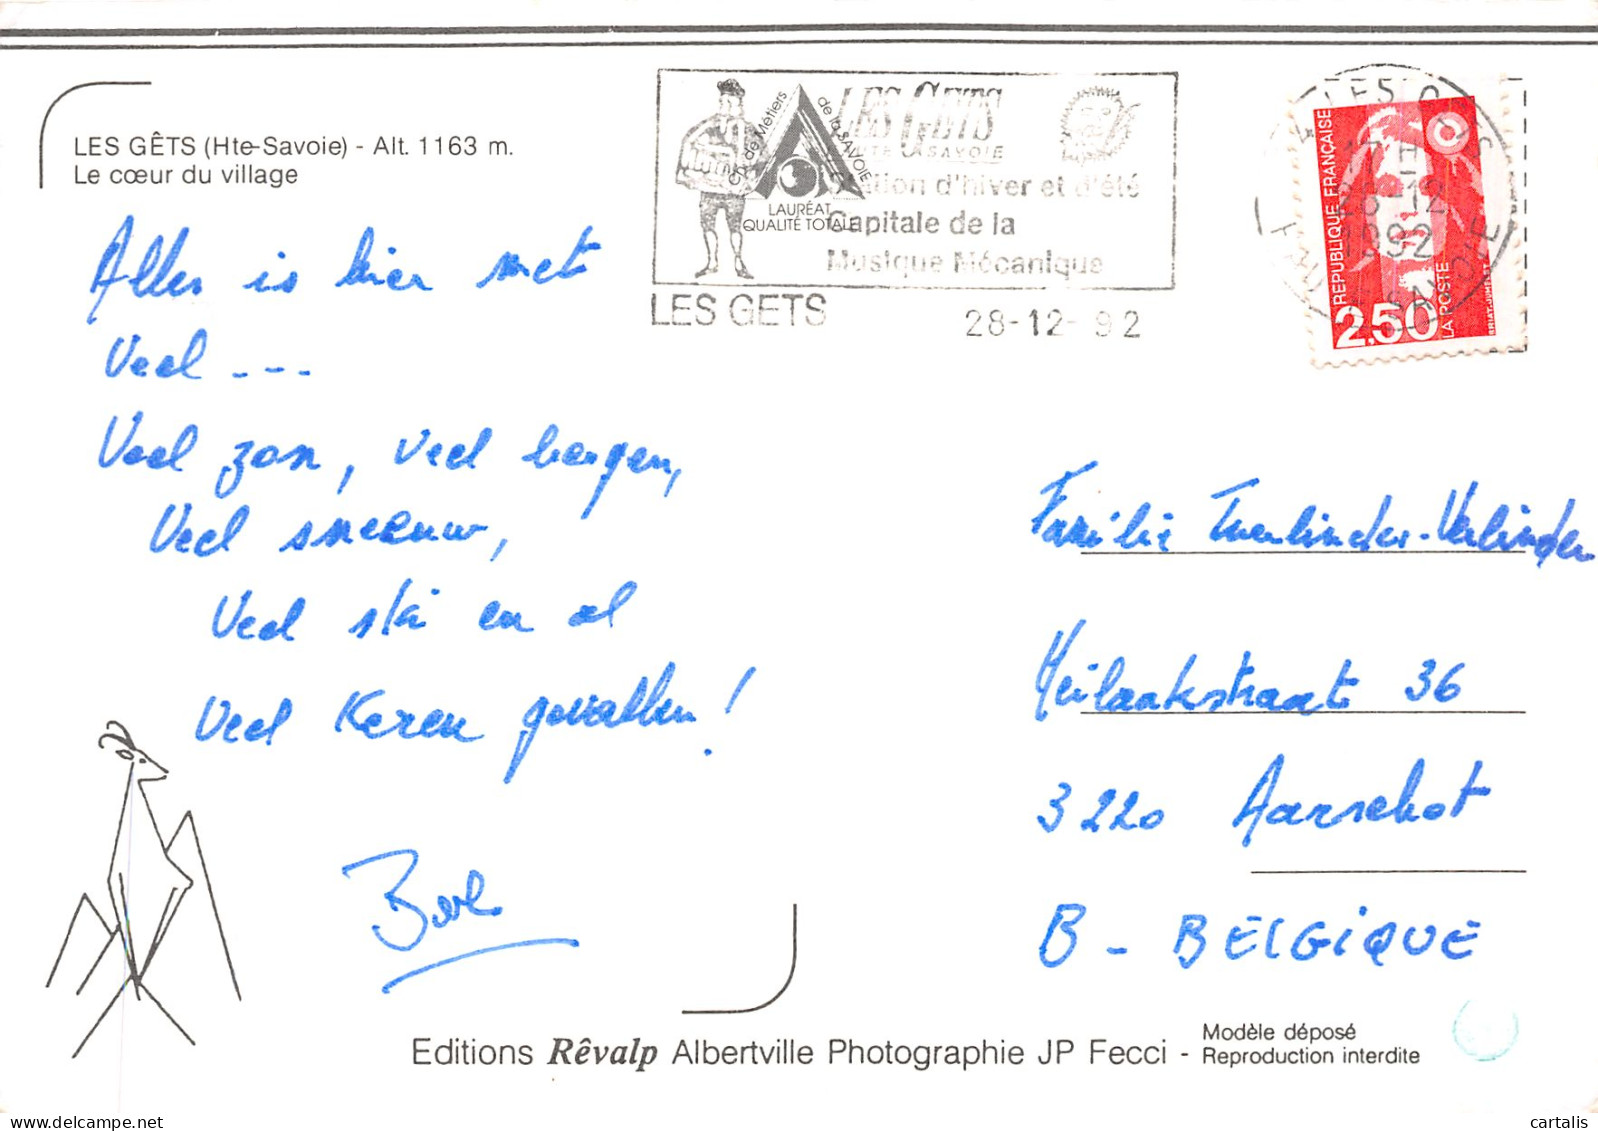 LES GÊTS (Hte-Savoie) - Alt. 1163 m.
Le cœur du village
Alles is hier met
Veel ---
Veel zon, veel bergen,
Veel sneeuw,
Veel ski en al
Veel keren gevallen!
LES GETS
HAUTE SAVOIE
Station d'hiver et d'été
Capitale de la
Musique Mécanique
Ch. de Métiers de la SAVOIE
LAURÉAT
QUALITÉ TOTALE
LES GETS 28-12-92
LES GETS
17 H
28-12
1992
HTE SAVOIE
REPUBLIQUE FRANÇAISE
LA POSTE
2,50
Familie Tuerlinckx-Verlinden
36
3220 Aarschot
B - BELGIQUE
Editions Rêvalp Albertville Photographie JP Fecci - Modèle déposé
Reproduction interdite
cartalis